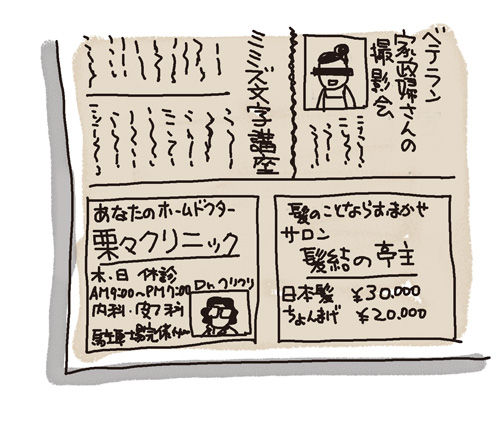 ベテラン
家政婦さんの
撮影会
ミミズ文字講座
あなたのホームドクター
栗々クリニック
木・日 休診
AM9:00〜PM7:00
内科・皮フ科
Dr.クリクリ
髪のことならおまかせ
サロン
髪結の亭主
日本髪 ¥30,000
ちょんまげ ¥20,000